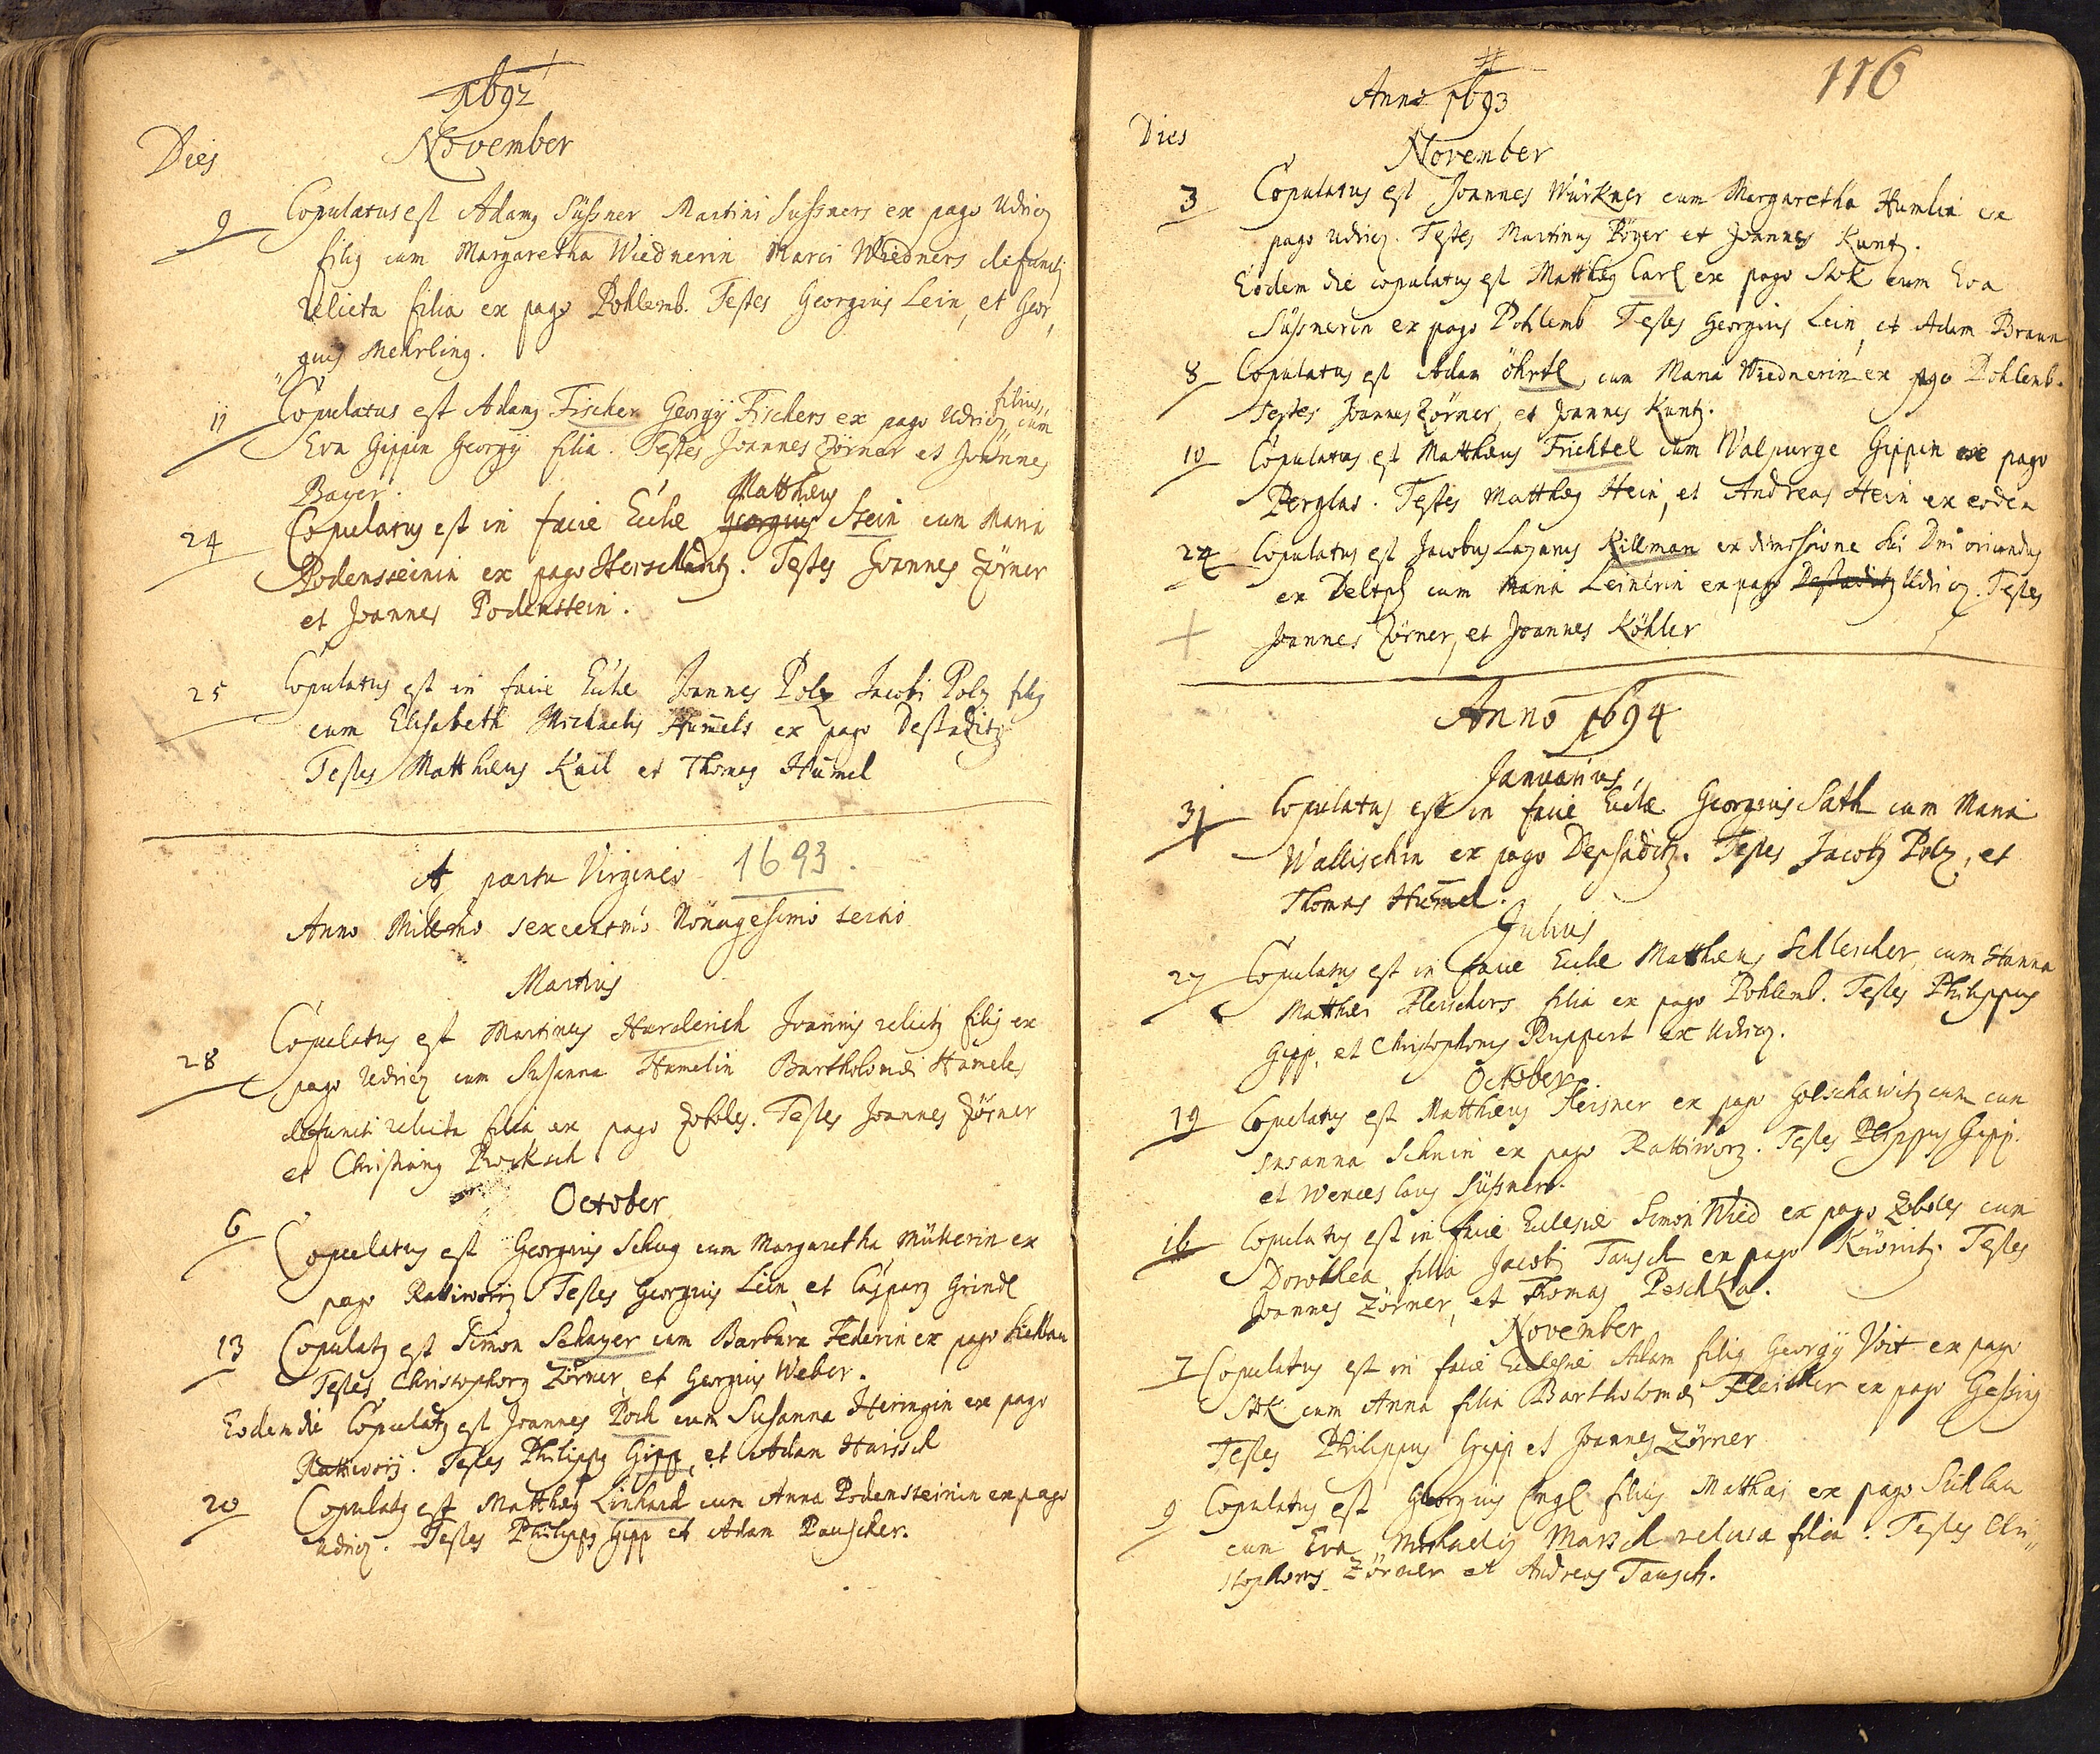 1692
Dies November
9 Copulatus est Adamg Süssner Martini Sussners ex pago Udricz
filig cum Margaretha Wiednerin Marci Wiedners defuncti
relicta filia ex pago Pohlemb. Testes Georgius Lein, et Geor,
gius Mehrling.
11 Copulatus est Adamg Fischer Georgÿ Fischers ex pago Udricz filius,, cum
Eva Gippin Georgÿ filia. Testes Joannes Zörner et Joannes
Bayer.
24 Copulatus est in facie Eccle Georgius Matthæus Stein cum Maria
Podensteinin ex pago Herschaditz. Testes Joannes Zörner
et Joannes Podenstein.
25 Copulatus est in facie Eccle Joannes Polz Jacobi Polz filig
cum Elisabeth Michaelis Hum̄els ex pago Destaditz
Testes Matthæus Kail et Thomas Hum̄el
A partu Virgineo 1693.
Anno Millesmo sexcentmo Nonagesimo tertio
Martius
28 Copulatus est Martinus Harderich Joannis relictg filig ex
pago Udricz cum Susanna Hamelin Bartholomæi Hameles
defuncti relicta filia ex pago Zoboles. Testes Joannes Zörner
et Christiang Procksch
October
6 Copulatus est Georgius Schug cum Margaretha Müllerin ex
pago Rattiworz Testes Georgius Lein, et Casparg Grindl
13 Copulatg est Simon Schayer cum Barbara Federin ex pago Sichlau
Testes Christophorg Zörner, et Georgius Weber.
Eodem die Copulatg est Joannes Poch cum Susanna Heringin ex pago
Rattiworz. Testes Philippg Gipp, et Adam Harisch
20 Copulatg est Matthæg Linhard cum Anna Podensteinin ex pago
Udricz. Testes Philippg Gipp et Adam Pauscher.
116
Anno 1693
Dies
November
3 Copulatus est Joannes Würkner cum Margaretha Humlin ex
pago Udricz. Testes Martinus Pöyer et Joannes Kuntz.
Eodem die copulatus est Matthæg Carl ex pago Stok cum Eva
Süssnerin ex pago Pohlemb Testes Georgius Lein, et Adam Braun
8 Copulatus est Adam Öhrtl, cum Maria Wiednerin ex pago Pohlemb.
Testes Joannes Zörner, et Joannes Kuntz.
10 Copulatus est Matthæus Frichtel cum Walpurge Gippin ex pago
Perglas. Testes Matthæg Hein, et Andreas Hein ex eodem
24 Copulatus est Jacobus Lazarus Killman ex dimissione sui Dni oriundus
ex Deltsch cum Maria Leinerin ex pago Destaditz Udricz. Testes
Joannes Zörner, et Joannes Köhler
Anno 1694
Januarius
31 Copulatus est in facie Eccle Georgius Sath cum Maria
Wallischin ex pago Depsaditz. Testes Jacobg Polz, et
Thomas Hum̄el.
Julius
27 Copulatus est in facie Eccle Matthæus Schlescher, cum Hanna
Matthæi Fleischers filia ex pago Pohlemb. Testes Philippus
Gipp, et Christophorus Ruppert ex Udricz.
October
19 Copulatus est Matthæus Fleisner ex pago Goeschawitz cum cum
Susanna Schnin ex pago Rattiworz. Testes Philippus Gipp.
et Wenceslaus Süssner.
16 Copulatus est in facie Ecclesiæ Simon Wied ex pago Zoboles cum
Dorothea filia Jacobi Tausch ex pago Käwnitz. Testes
Joannes Zörner, et Thomas Peschka.
November
7 Copulatus est in facie Ecclesiæ Adam filig Georgÿ Voit ex pago
Stok cum Anna filia Bartholomæi Fleischer ex pago Gessing
Testes Philippus Gipp et Joannes Zörner
9 Copulatus est Georgius Engl filius Matthæi ex pago Sichlau
cum Eva Michaelis Marsch relicta filia. Testes Chri,,
stophorus Zörner et Andreas Tausch.